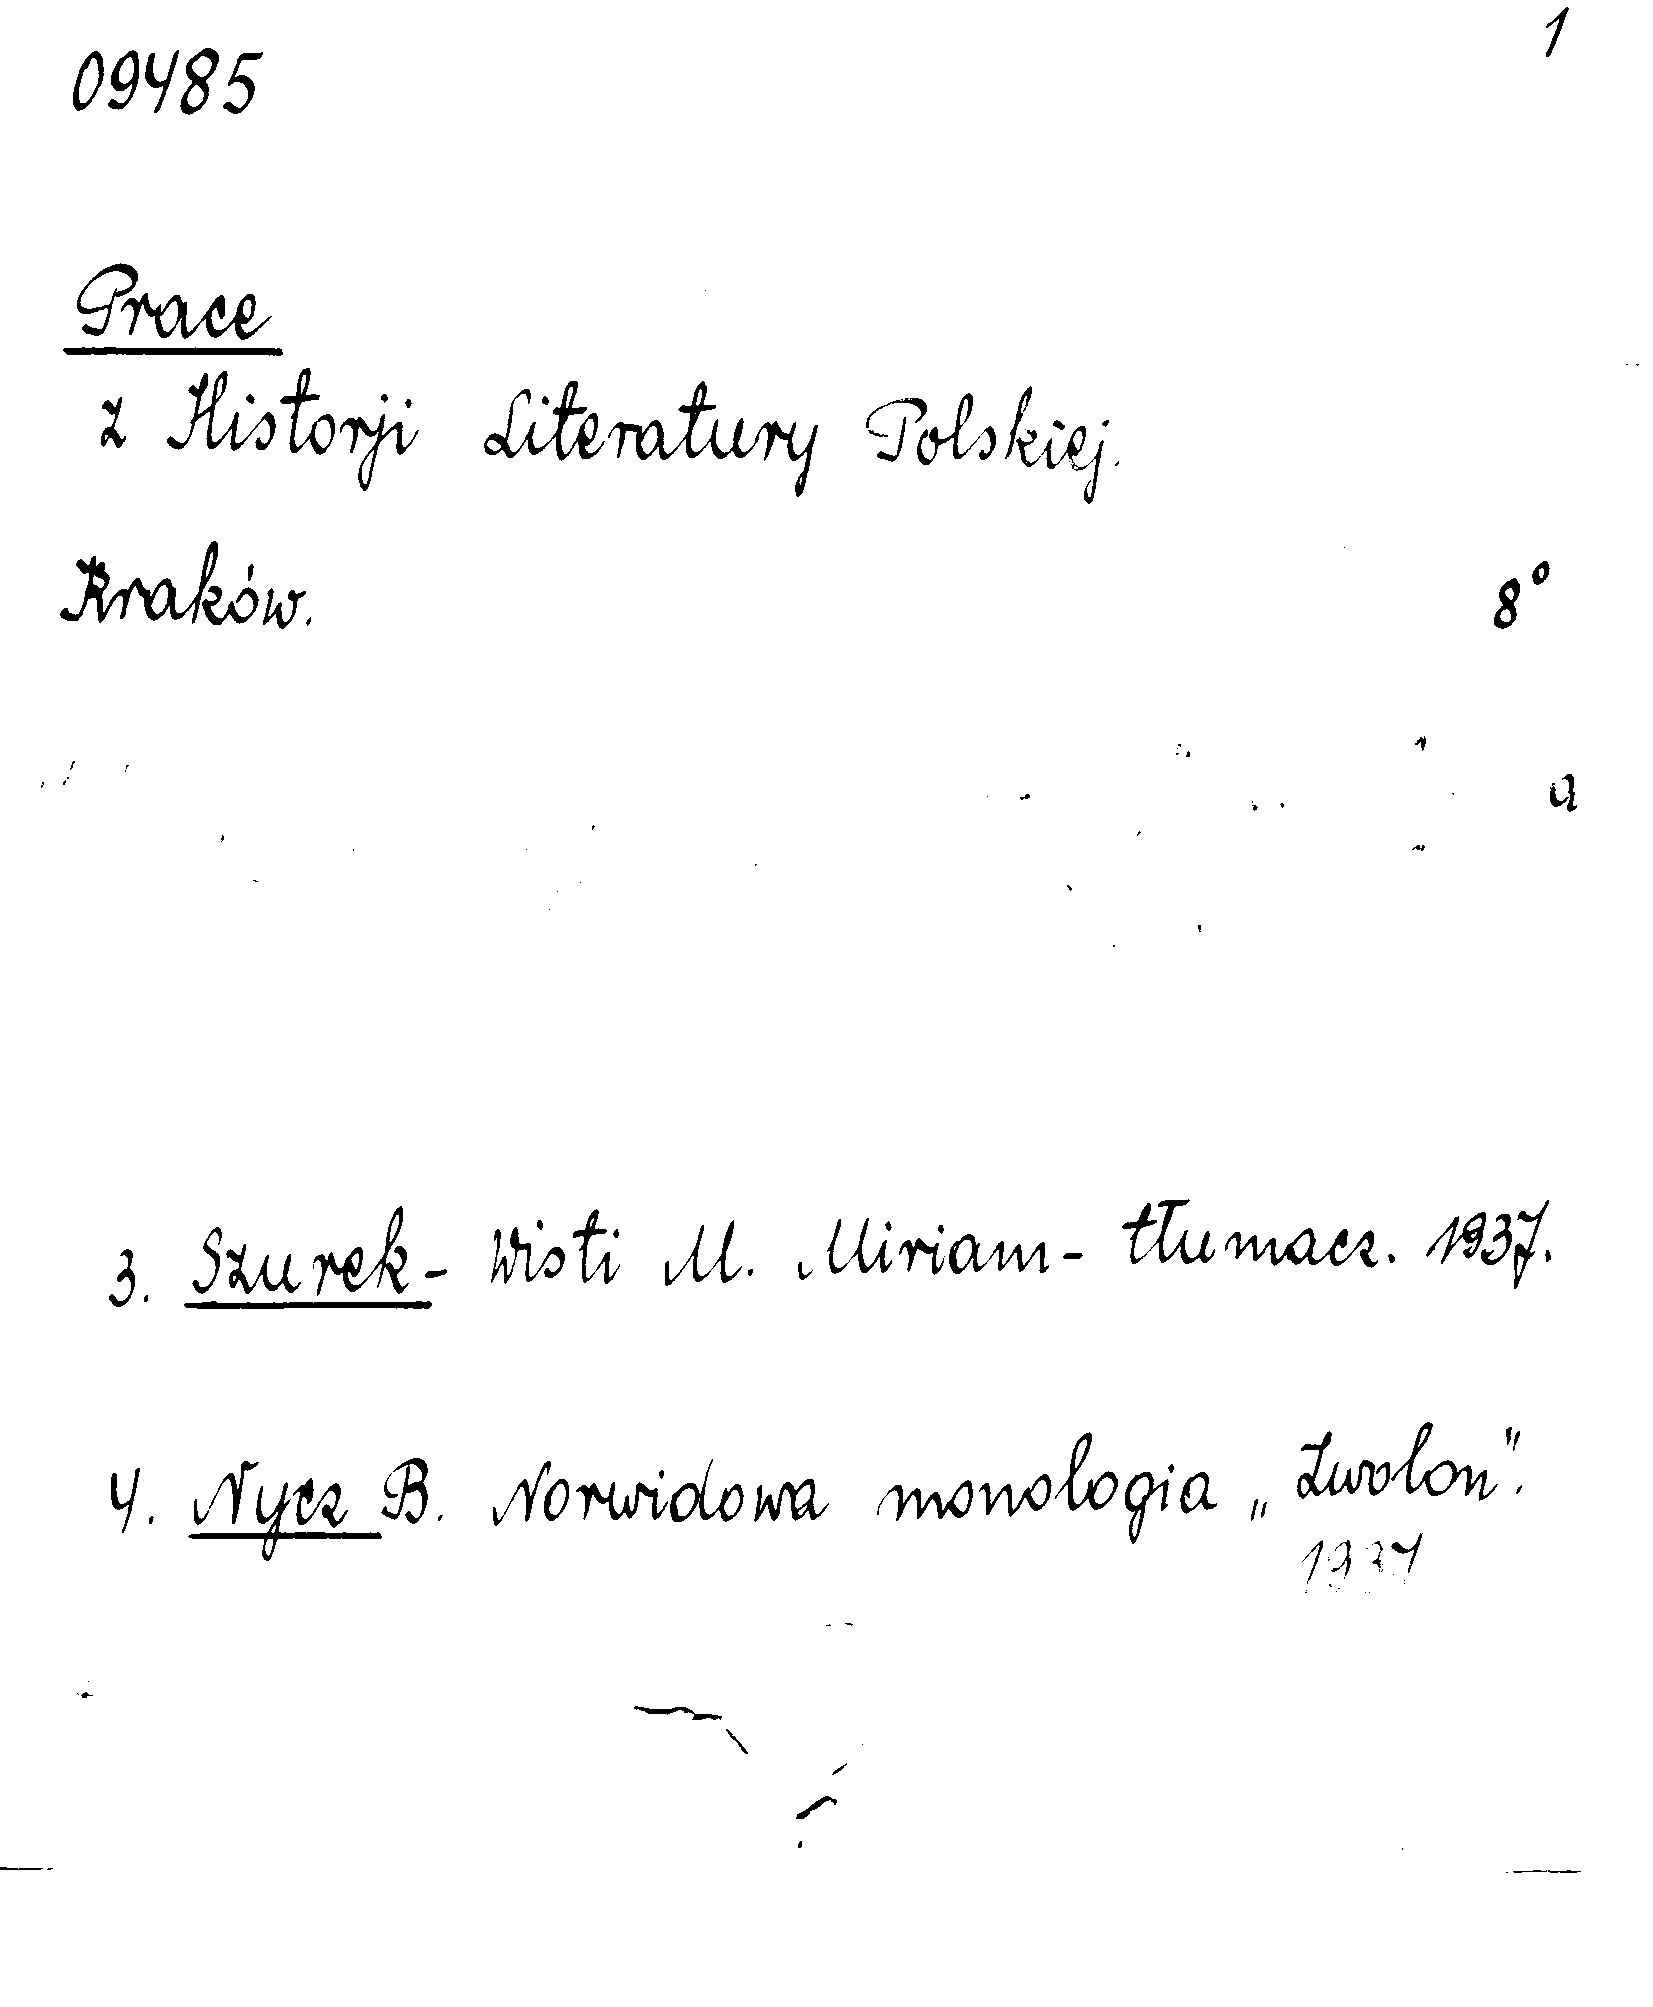 1
09485
Prace
z Historji Literatury Polskiej.
Kraków. 8°
a
3. Szurek - Wisti M. Miriam - tłumacz. 1937.
4. Nycz B. Norwidowa monologia „Zwolon".
1937